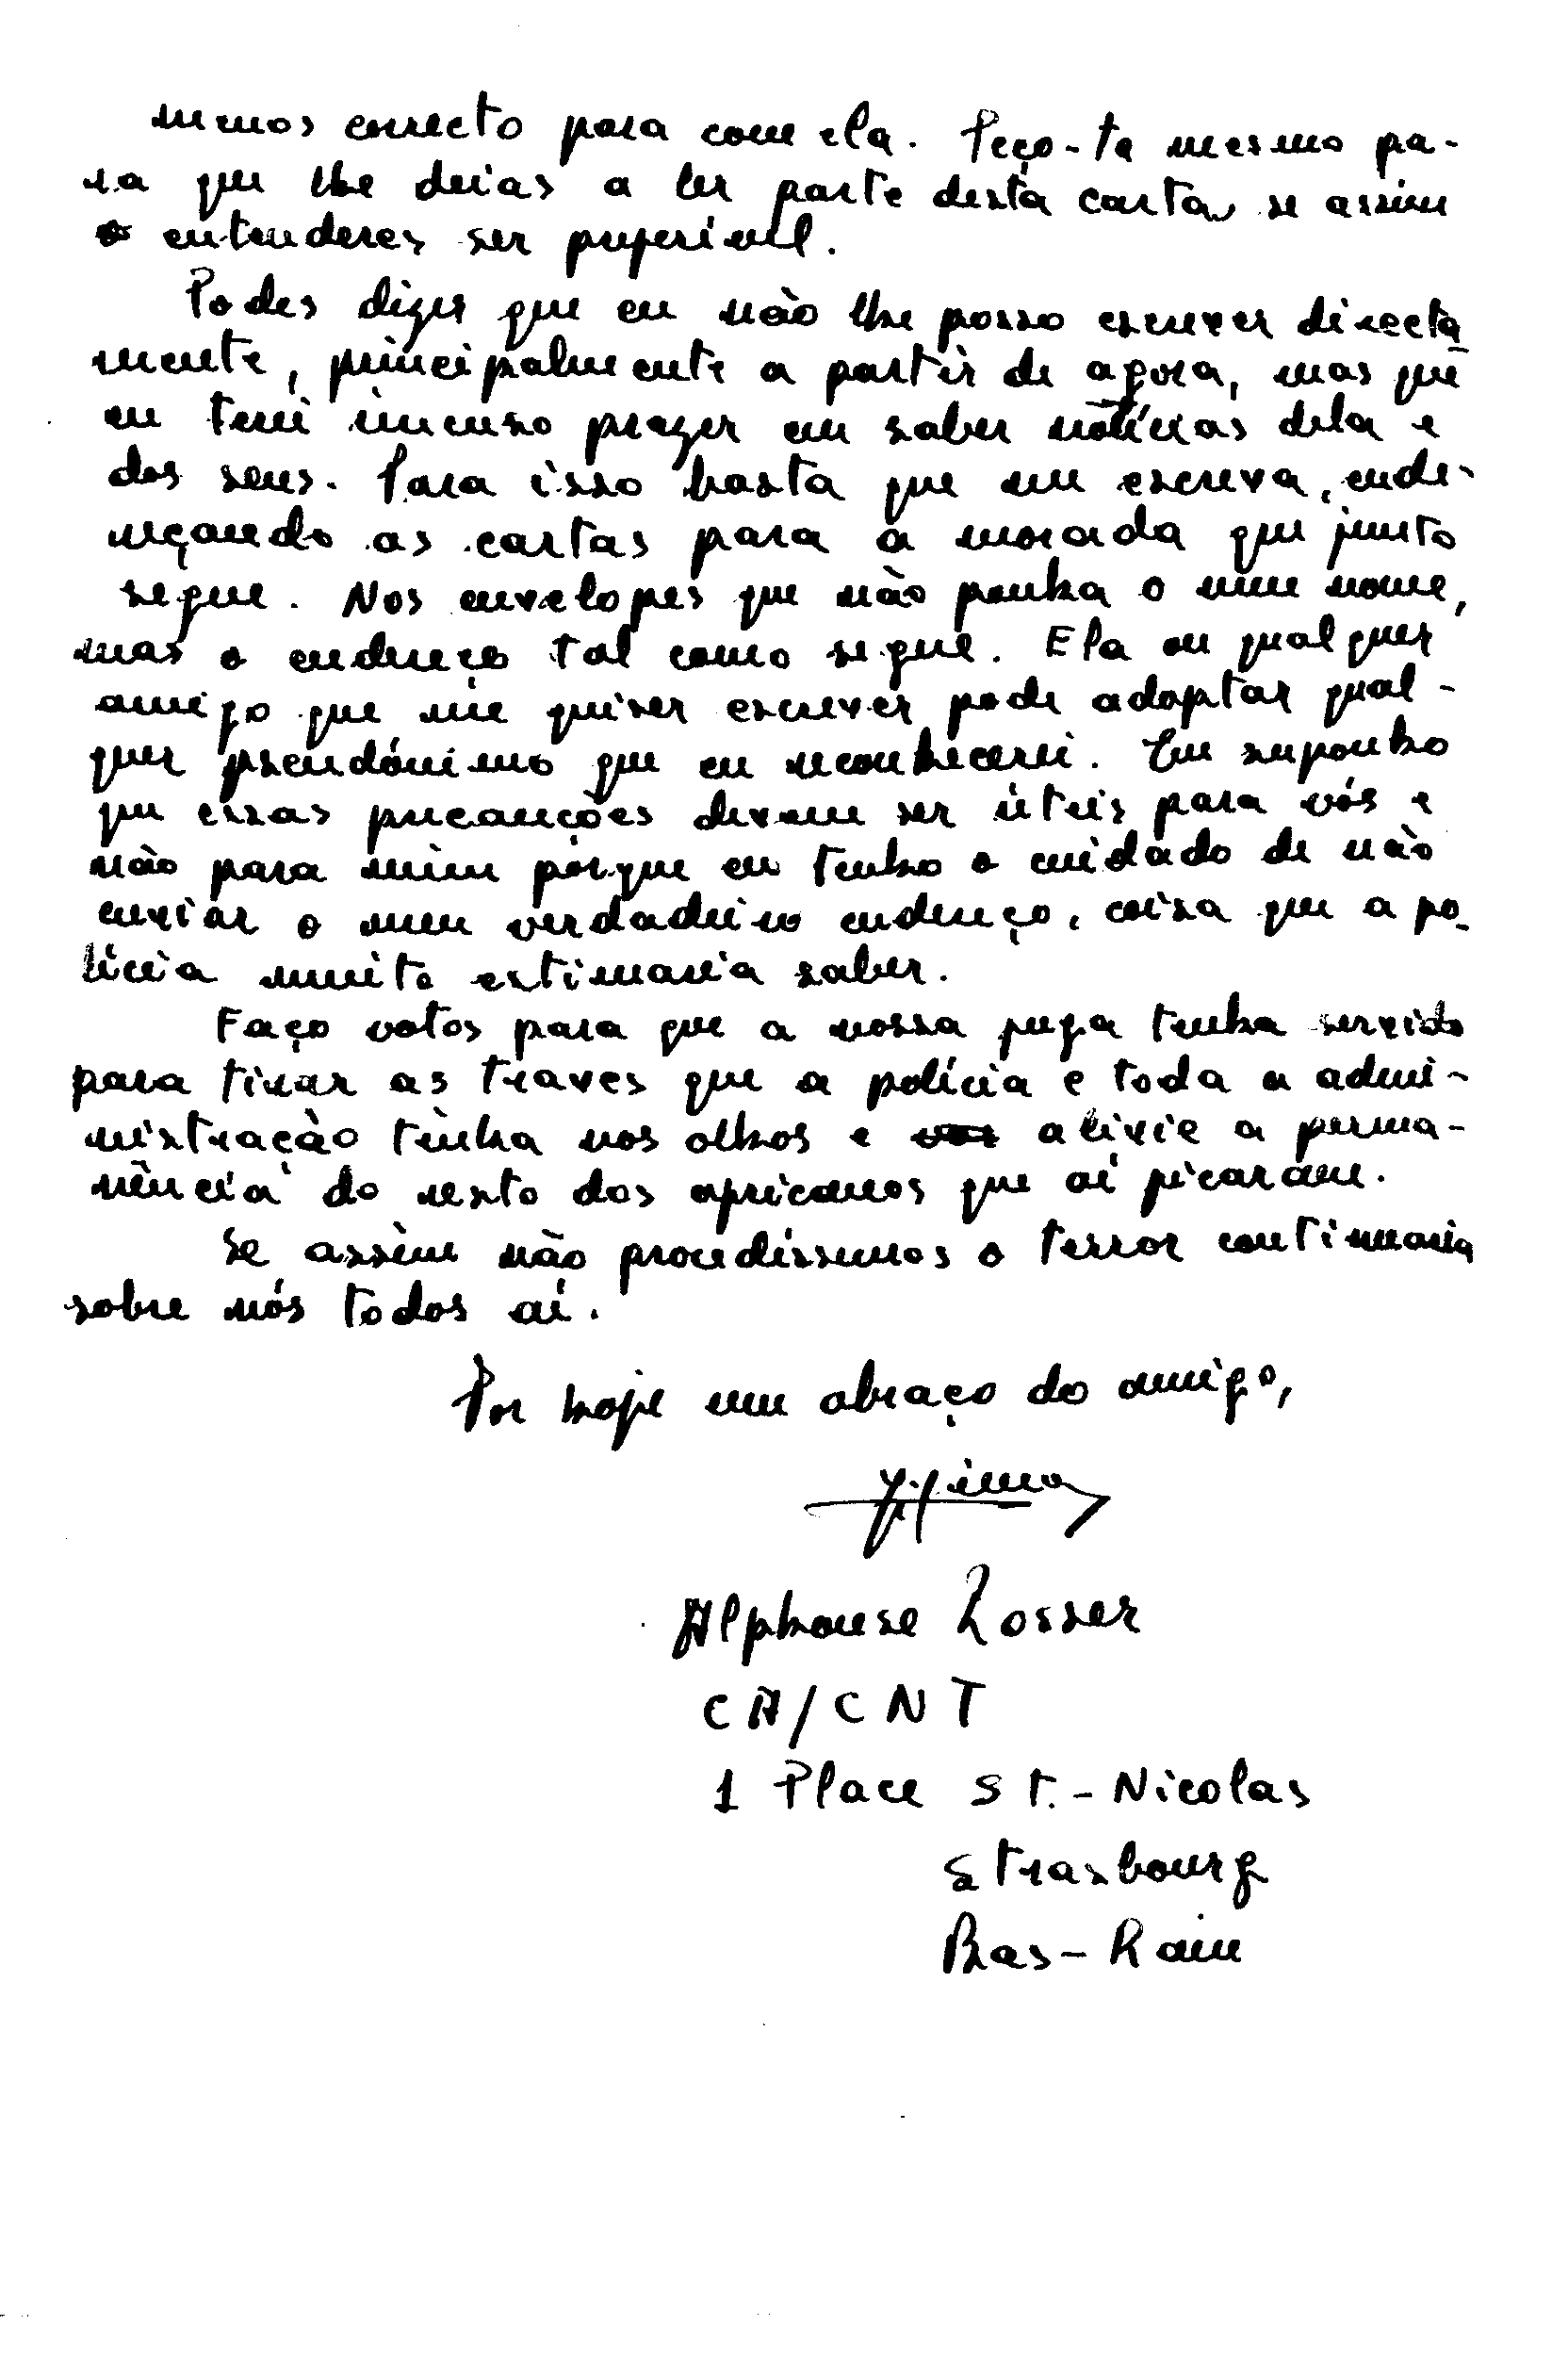 menos correcto para com ela. Peço-te mesmo pa-
ra que lhe deias a ler parte desta carta, se assim
o entenderes ser preferível.
Podes dizer que eu não lhe posso escrever directa
mente, principalmente a partir de agora, mas que
eu terei imenso prazer em saber notícias dela e
dos seus. Para isso basta que me escreva, ende-
reçando as cartas para a morada que junto
segue. Nos envelopes que não ponha o meu nome,
mas o endereço tal como segue. Ela ou qualquer
amigo que me quiser escrever pode adoptar qual-
quer pseudónimo que eu reconhecerei. Eu suponho
que essas precauções devem ser úteis para vós e
não para mim porque eu tenho o cuidado de não
enviar o meu verdadeiro endereço, coisa que a po-
lícia muito estimaria saber.
Faço votos para que a nossa fuga tenha servido
para tirar as traves que a polícia e toda a admi-
nistração tinha nos olhos e alivie a perma-
nência do resto dos africanos que aí ficaram.
Se assim não procedêssemos o terror continuaria
sobre nós todos aí.
Por hoje um abraço do amigo,
Alphonse Rosser
CA/CNT
1 Place St.-Nicolas
Strasbourg
Bas-Rain